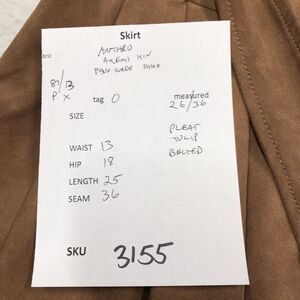 Skirt
ANTHRO
AKEMI KIN
bric
FAUX SUEDE Style #
87/13
P X
tag 0
measured
26/36
SIZE
PLEAT
TULIP
BELTED
WAIST 13
HIP 18
LENGTH 25
SEAM 36
SKU 3155